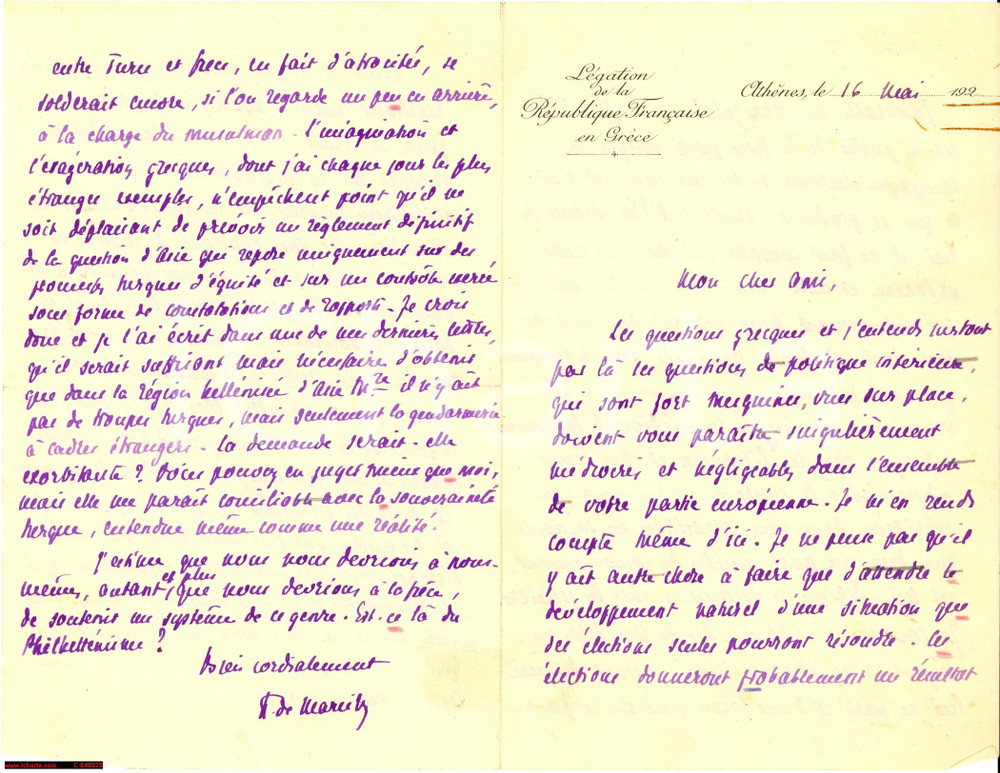 Légation
de la
République Française
en Grèce
Athènes, le 16 Mai 192
Mon cher Ami,
Les questions grecques et j'entends surtout
par là les questions de politique intérieure,
qui sont fort mesquines, vues sur place,
doivent vous paraître singulièrement
médiocres et négligeables dans l'ensemble
de votre partie européenne. Je m'en rends
compte même d'ici. Je ne pense pas qu'il
y ait autre chose à faire que d'attendre le
développement naturel d'une situation que
des élections seules pourront résoudre. Les
élections donneront probablement un résultat
entre Turcs et Grecs, en fait d'atrocités, se
solderait encore, si l'on regarde un peu en arrière,
à la charge du musulman. L'imagination et
l'exagération grecques, dont j'ai chaque jour les plus
étranges exemples, n'empêchent point qu'il ne
soit déplaisant de prévoir un règlement définitif
de la question d'Asie qui repose uniquement sur des
promesses turques d'équité et sur un contrôle
sous forme de constatations et de rapports. Je crois
donc et je l'ai écrit dans une de mes dernières lettres,
qu'il serait suffisant mais nécessaire d'obtenir
que dans la région hellénisée d'Asie Mre il n'y ait
pas de troupes turques, mais seulement la gendarmerie
à cadres étrangers. La demande serait-elle
exorbitante? Vous pouvez en juger mieux que moi,
mais elle me paraît conciliable avec la souveraineté
turque, entendue même comme une réalité.
J'estime que nous nous devrions à nous-
mêmes, autant et plus que nous devrions à la Grèce,
de soutenir un système de ce genre. Est-ce là du
Philhellénisme?
Bien cordialement
de Marcilly
www.icharta.com C-848828